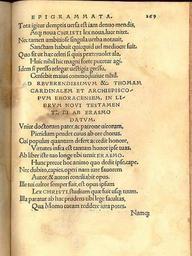 EPIGRAMMATA. 269
Tota igitur demptis versa est iam denuo mendis,
Atq; noua CHRISTI lex noua luce nitet.
Nec tamen ambitiose singula uerba notauit,
Sanctum habuit quicquid uel mediocre fuit.
Quo fit ut hæc celeri si quis preteruolet ala,
Huic nihil hic magni forte putetur agi.
Idem si presso relegat uestigia gressu,
Censebit maius commodiusue nihil.
AD REVERENDISSIMVM & THOMAM,
CARDINALEM ET ARCHIEPISCO
PVM EBORACENSEM, IN LI
BRVM NOVI TESTAMEN
TI EI AB ERASMO
DATVM.
Vnice doctorum pater, ac patrone uirorum,
Pieridum pendet cuius ab ore chorus.
Cui populus quantum defert accedit honore,
Virtutes infra est tantum honor ipse tuas.
Ab libet iste tuo longe uenit ERASMO.
Hunc precor hoc animo quo dedit ipse, cape.
Nec dubito, capies, operi nam iure fauorem
Autor, & autori conciliabit opus.
Ille tui cultor semper fuit, est opus ipsum
Lex CHRISTI, studium quæ fuit usq; tuum.
Illa paratur ab hac prudens tibi lege facultas,
Qua Momo coram reddere iura potes.
Namq;